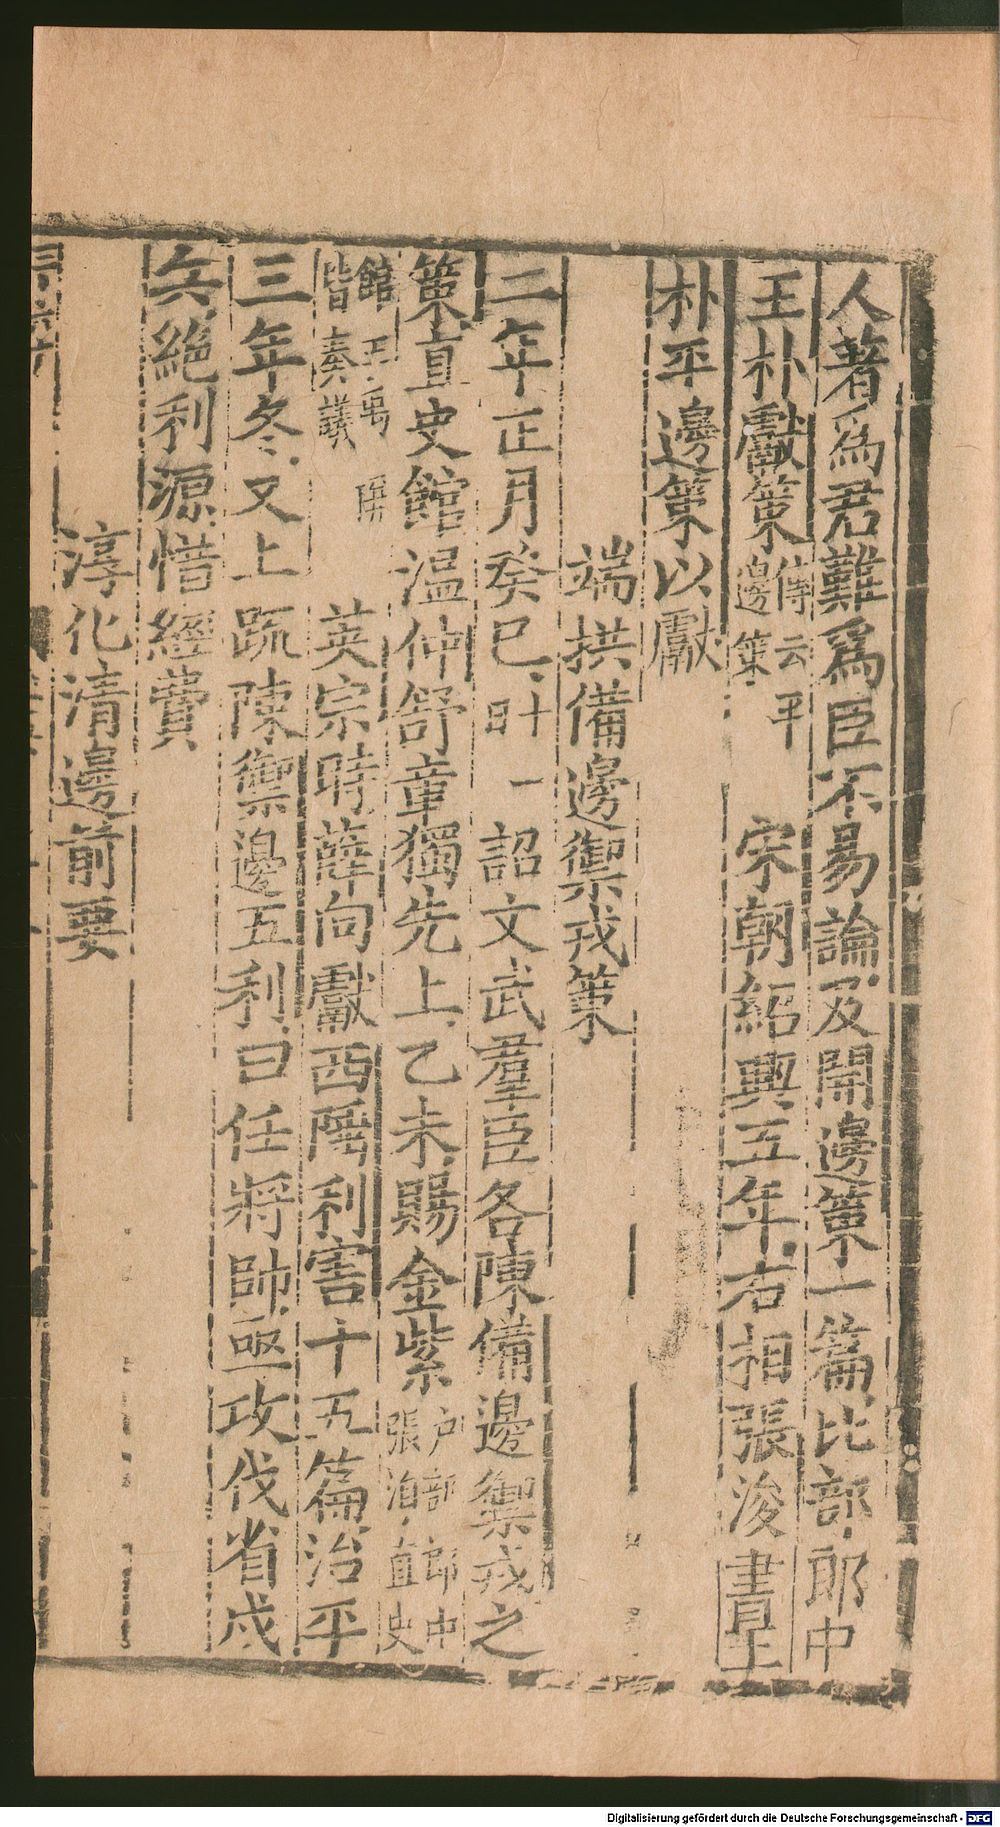 人著爲君難爲臣不易論及開邊策一篇比部郎中
王朴獻策傳云平邊策 宋朝紹興五年右相張浚書王
朴平邊策以獻
端拱備邊禦戎策
二年正月癸巳十一日詔文武羣臣各陳備邊禦戎之
策直史館温仲舒章獨先上乙未賜金紫户部郎中張洎直史
館王禹偁皆奏議 英宗時薛向獻西陲利害十五篇治平
三年冬又上疏陳禦邊五利曰任將帥亟攻伐省戍
兵絶利源惜經費
淳化清邊前要
Digitalisierung gefördert durch die Deutsche Forschungsgemeinschaft - DFG